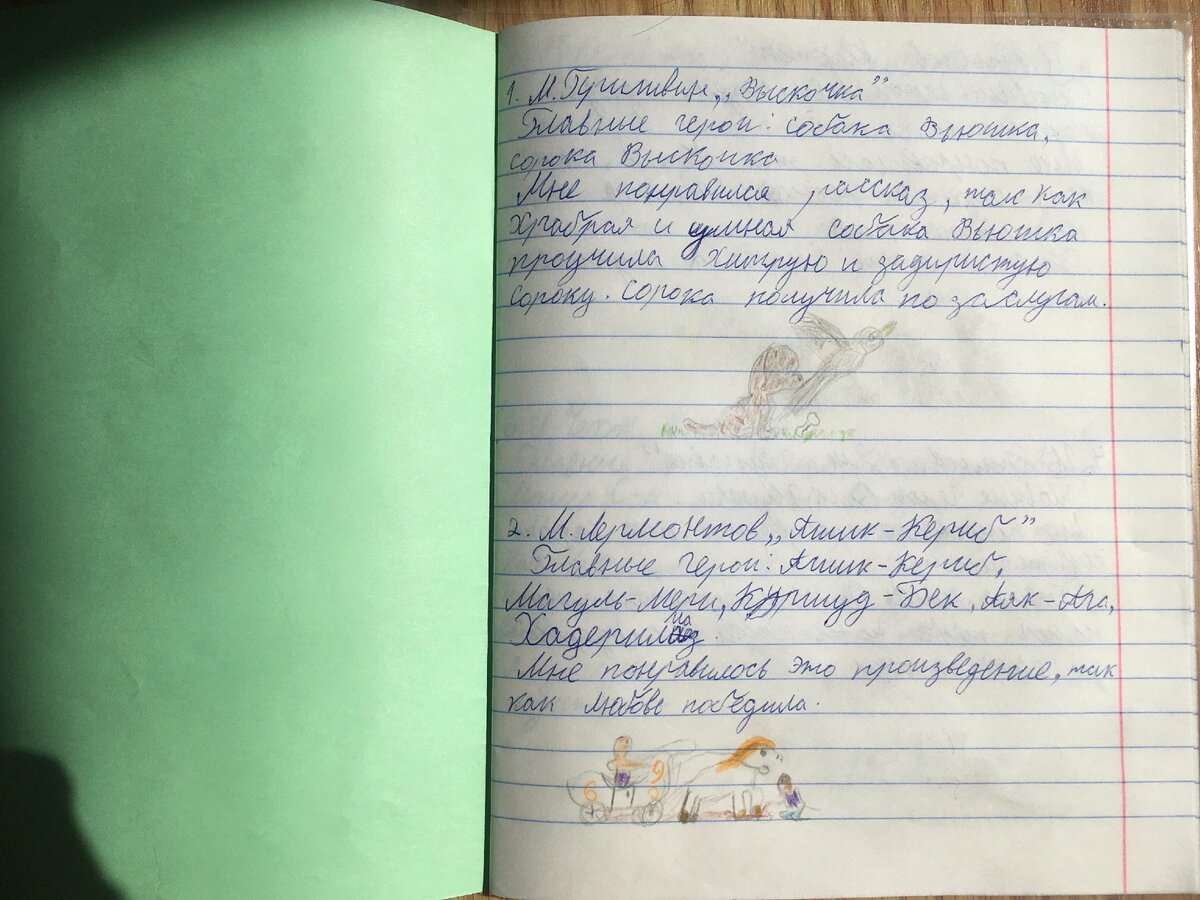 1. М. Пришвин „Выскочка”
Главные герои: собака Вьюшка,
сорока Выскочка
Мне понравился рассказ, так как
храбрая и умная собака Вьюшка
проучила хитрую и задиристую
сороку. Сорока получила по заслугам.
2. М. Лермонтов „Ашик-Кериб”
Главные герои: Ашик-Кериб,
Магуль-Мери, Куршуд-Бек, Аяк-Ага,
Мне понравилось это произведение, так
как любовь победила.